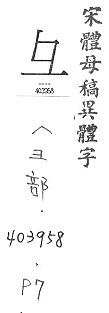 宋體母稿異體字
彑
403958
彐部
.
403958
.
P7